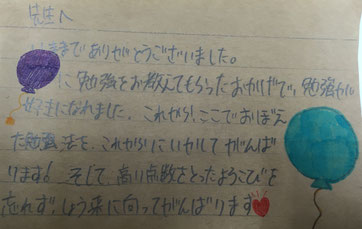 先生へ
今まで ありがとうございました。
に 勉強をお教えてもらったおかげで、勉強が
好きになれました。これから、ここでおぼえ
た勉強法を、これからにいかして がんば
ります！ そして、高い点数をとったよろこびを
忘れず、しょう来に向ってがんばります